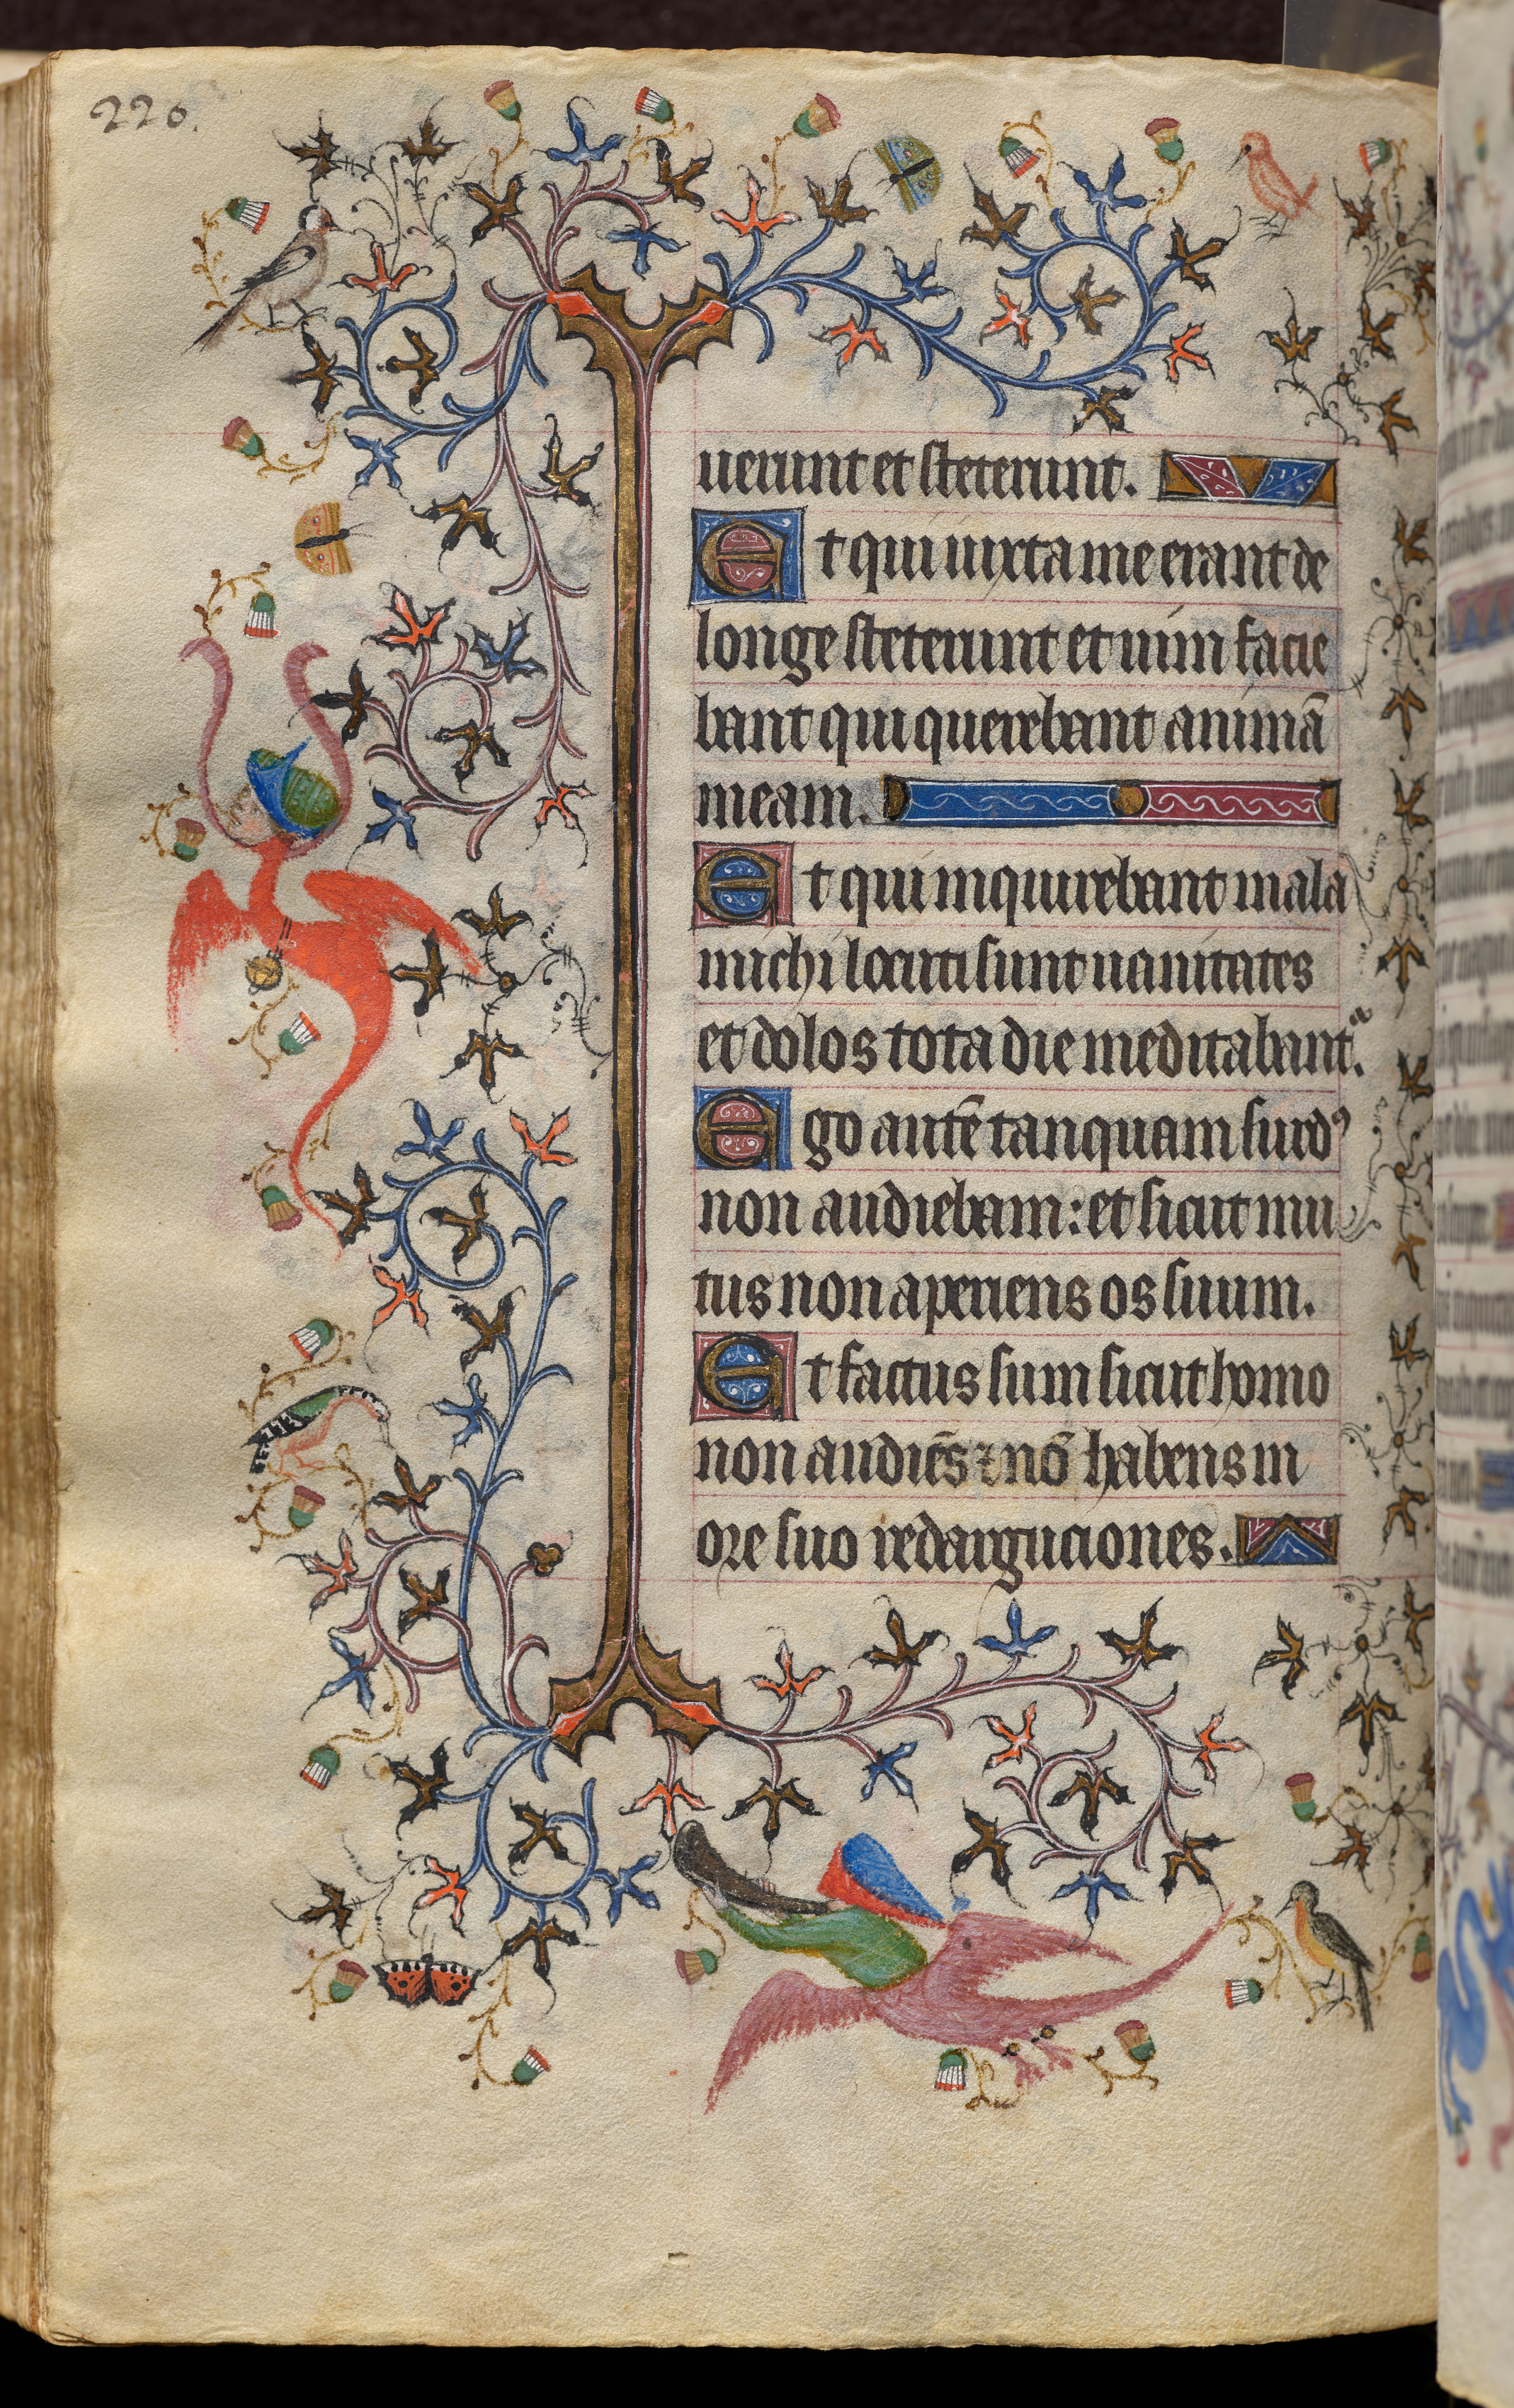 220.
uerunt et steterunt.
Et qui iuxta me erant de
longe steterunt et uim facie
bant qui querebant animā
meam.
Et qui inquirebant mala
michi locuti sunt uanitates
et dolos tota die meditabant᷑.
Ego autē tanquam surdꝰ
non audiebam: et sicut mu
tus non aperiens os suum.
Et factus sum sicut homo
non audiēs ⁊ nō habens in
ore suo redarguciones.